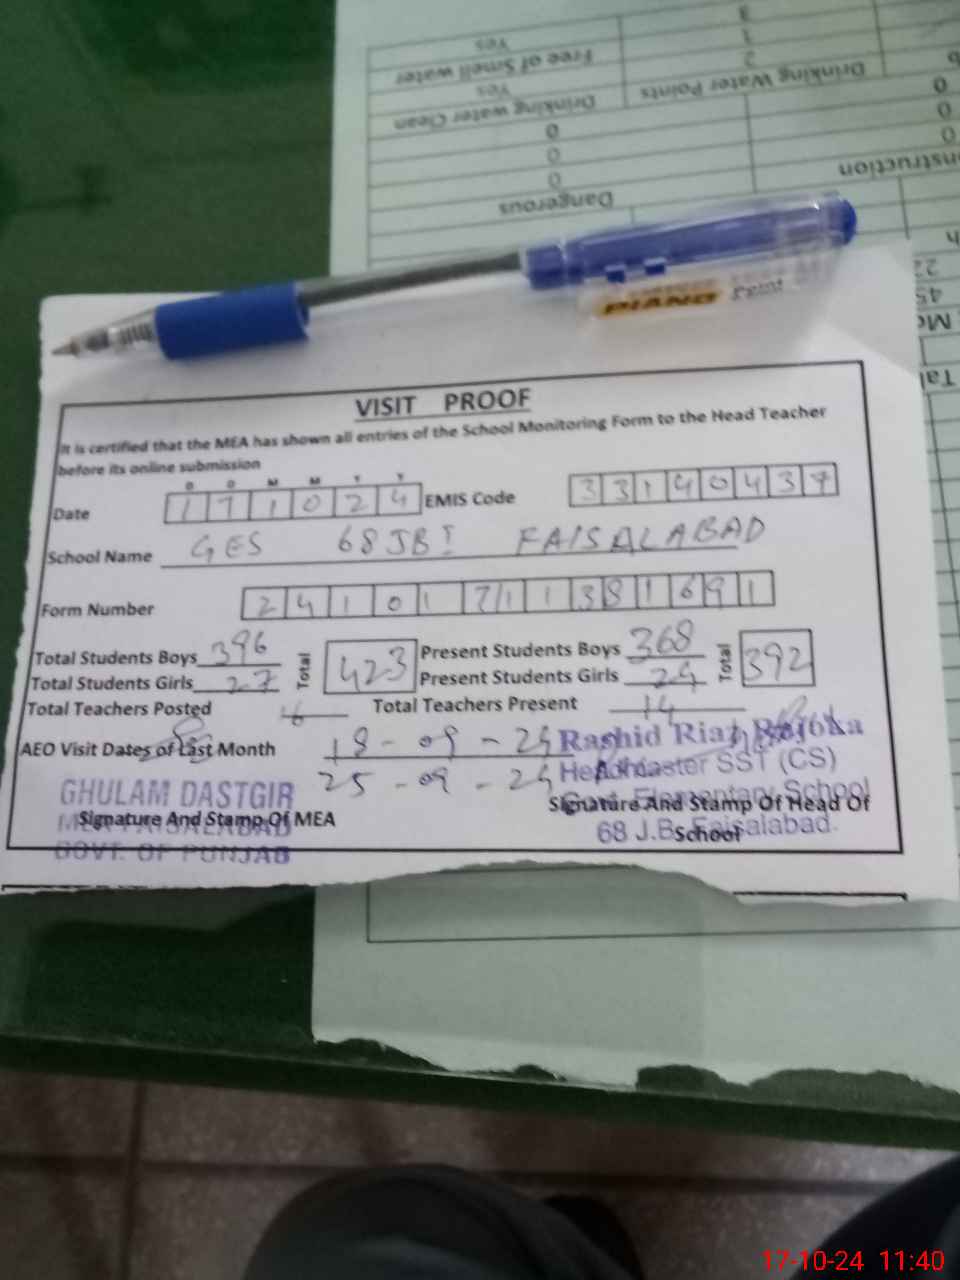 Yes
3
Free of Smell water
1
Yes
2
Drinking water Clean
Drinking Water Points
0
0
0
0
0
0
Dangerous
PIANO Point
VISIT PROOF
It is certified that the MEA has shown all entries of the School Monitoring Form to the Head Teacher
before its online submission
D D M M Y Y
Date 17 10 24 EMIS Code 33140437
School Name GES 68 JB I FAISALABAD
Form Number 24101711381691
Total Students Boys 396 Total 423 Present Students Boys 368 Total 392
Total Students Girls 27 Present Students Girls 24
Total Teachers Posted 16 Total Teachers Present 14
AEO Visit Dates of Last Month 18-09-24
25-09-24
Rashid Riaz Rajoka
Headmaster SST (CS)
Govt. Elementary School
68 J.B. Faisalabad.
Signature And Stamp Of Head Of
School
GHULAM DASTGIR
MEA FAISALABAD
GOVT. OF PUNJAB
Signature And Stamp Of MEA
17-10-24 11:40